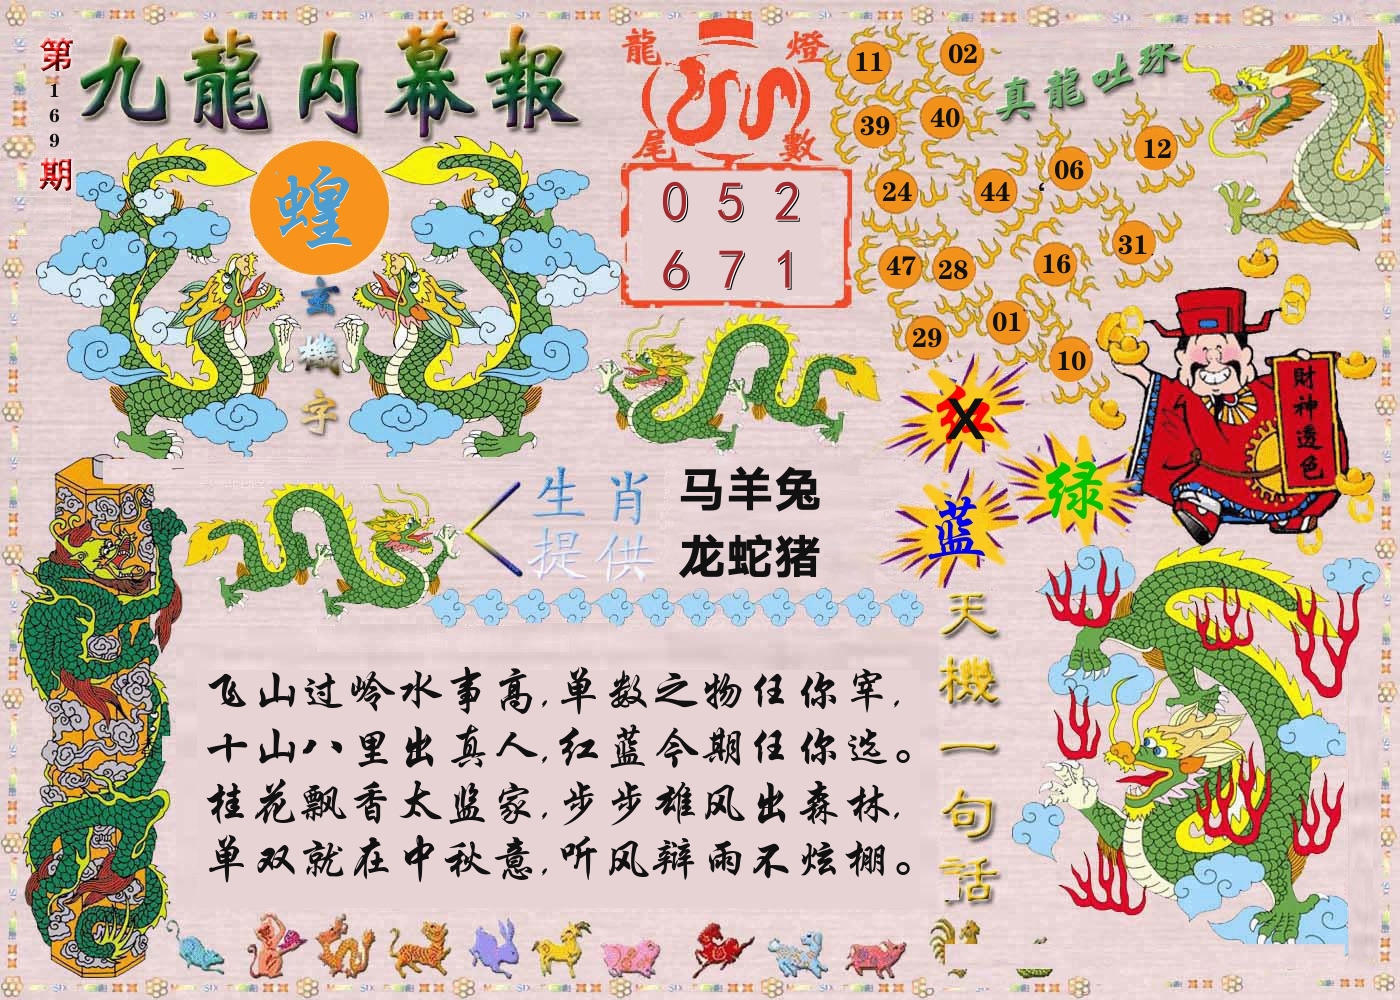 第169期
九龍内幕報
蝗
玄機字
龍燈尾數
052
671
真龍吐珠
11 02
39 40
24 44 06 12
47 28 16 31
29 01 10
红 X
绿
蓝
財神透色
生肖提供
马羊兔
龙蛇猪
天機一句話
飞山过岭水事高,单数之物任你牢,
十山八里出真人,红蓝今期任你选。
桂花飘香太监家,步步雄风出森林,
单双就在中秋意,听风辩雨不炫棚。